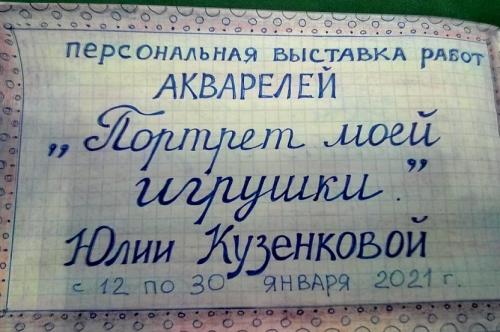 персональная выставка работ
АКВАРЕЛЕЙ
„Портрет моей
игрушки.”
Юлии Кузенковой
с 12 по 30 января 2021 г.